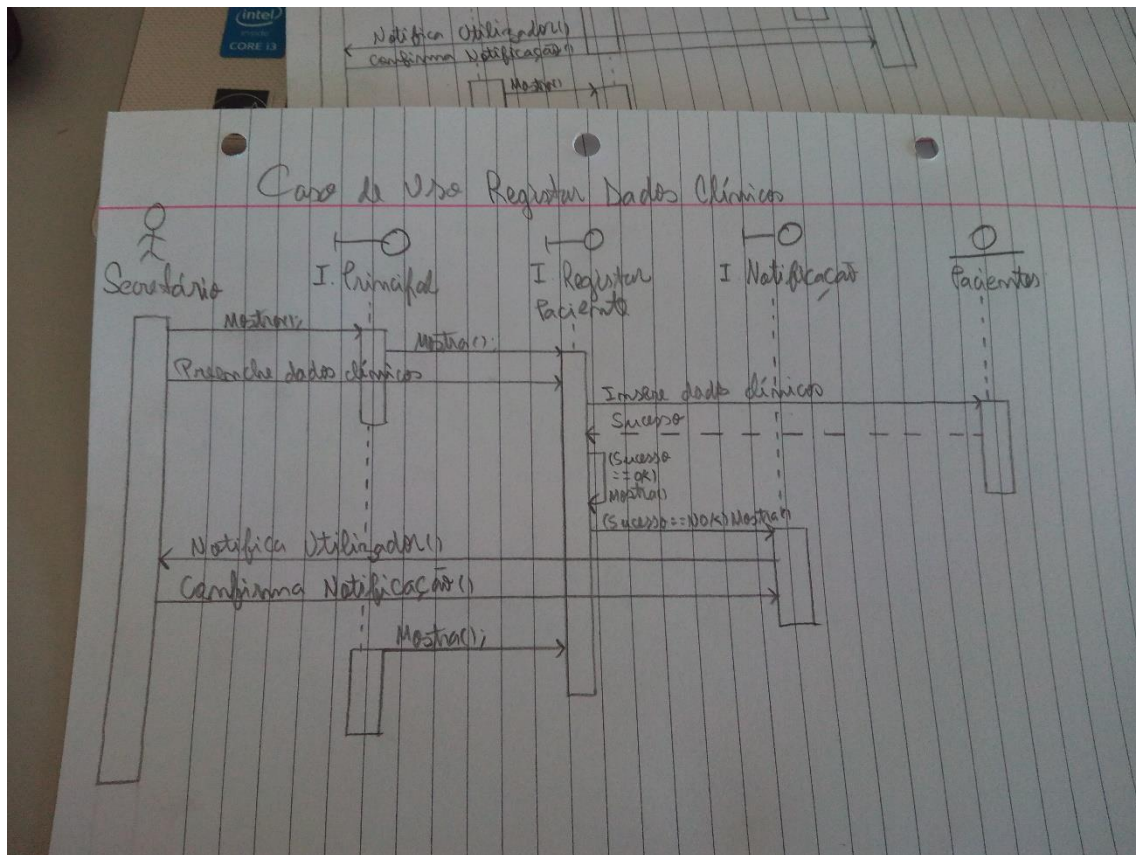 (intel)
inside
CORE i3
Notifica Utilizador()
Confirma Notificação()
Mostra()
Caso de Uso Registar Dados Clínicos
Secretário
I. Principal
I Registar
Paciente
I Notificação
Pacientes
Mostra();
Mostra();
Preenche dados clínicos
Insere dados clínicos
Sucesso
(Sucesso
==OK)
Mostra()
(Sucesso==NOK) Mostra()
Notifica Utilizador()
Confirma Notificação()
Mostra();